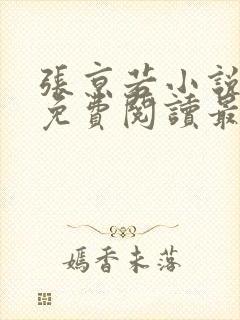 張京若小說
免費閱讀最
嫣香未落